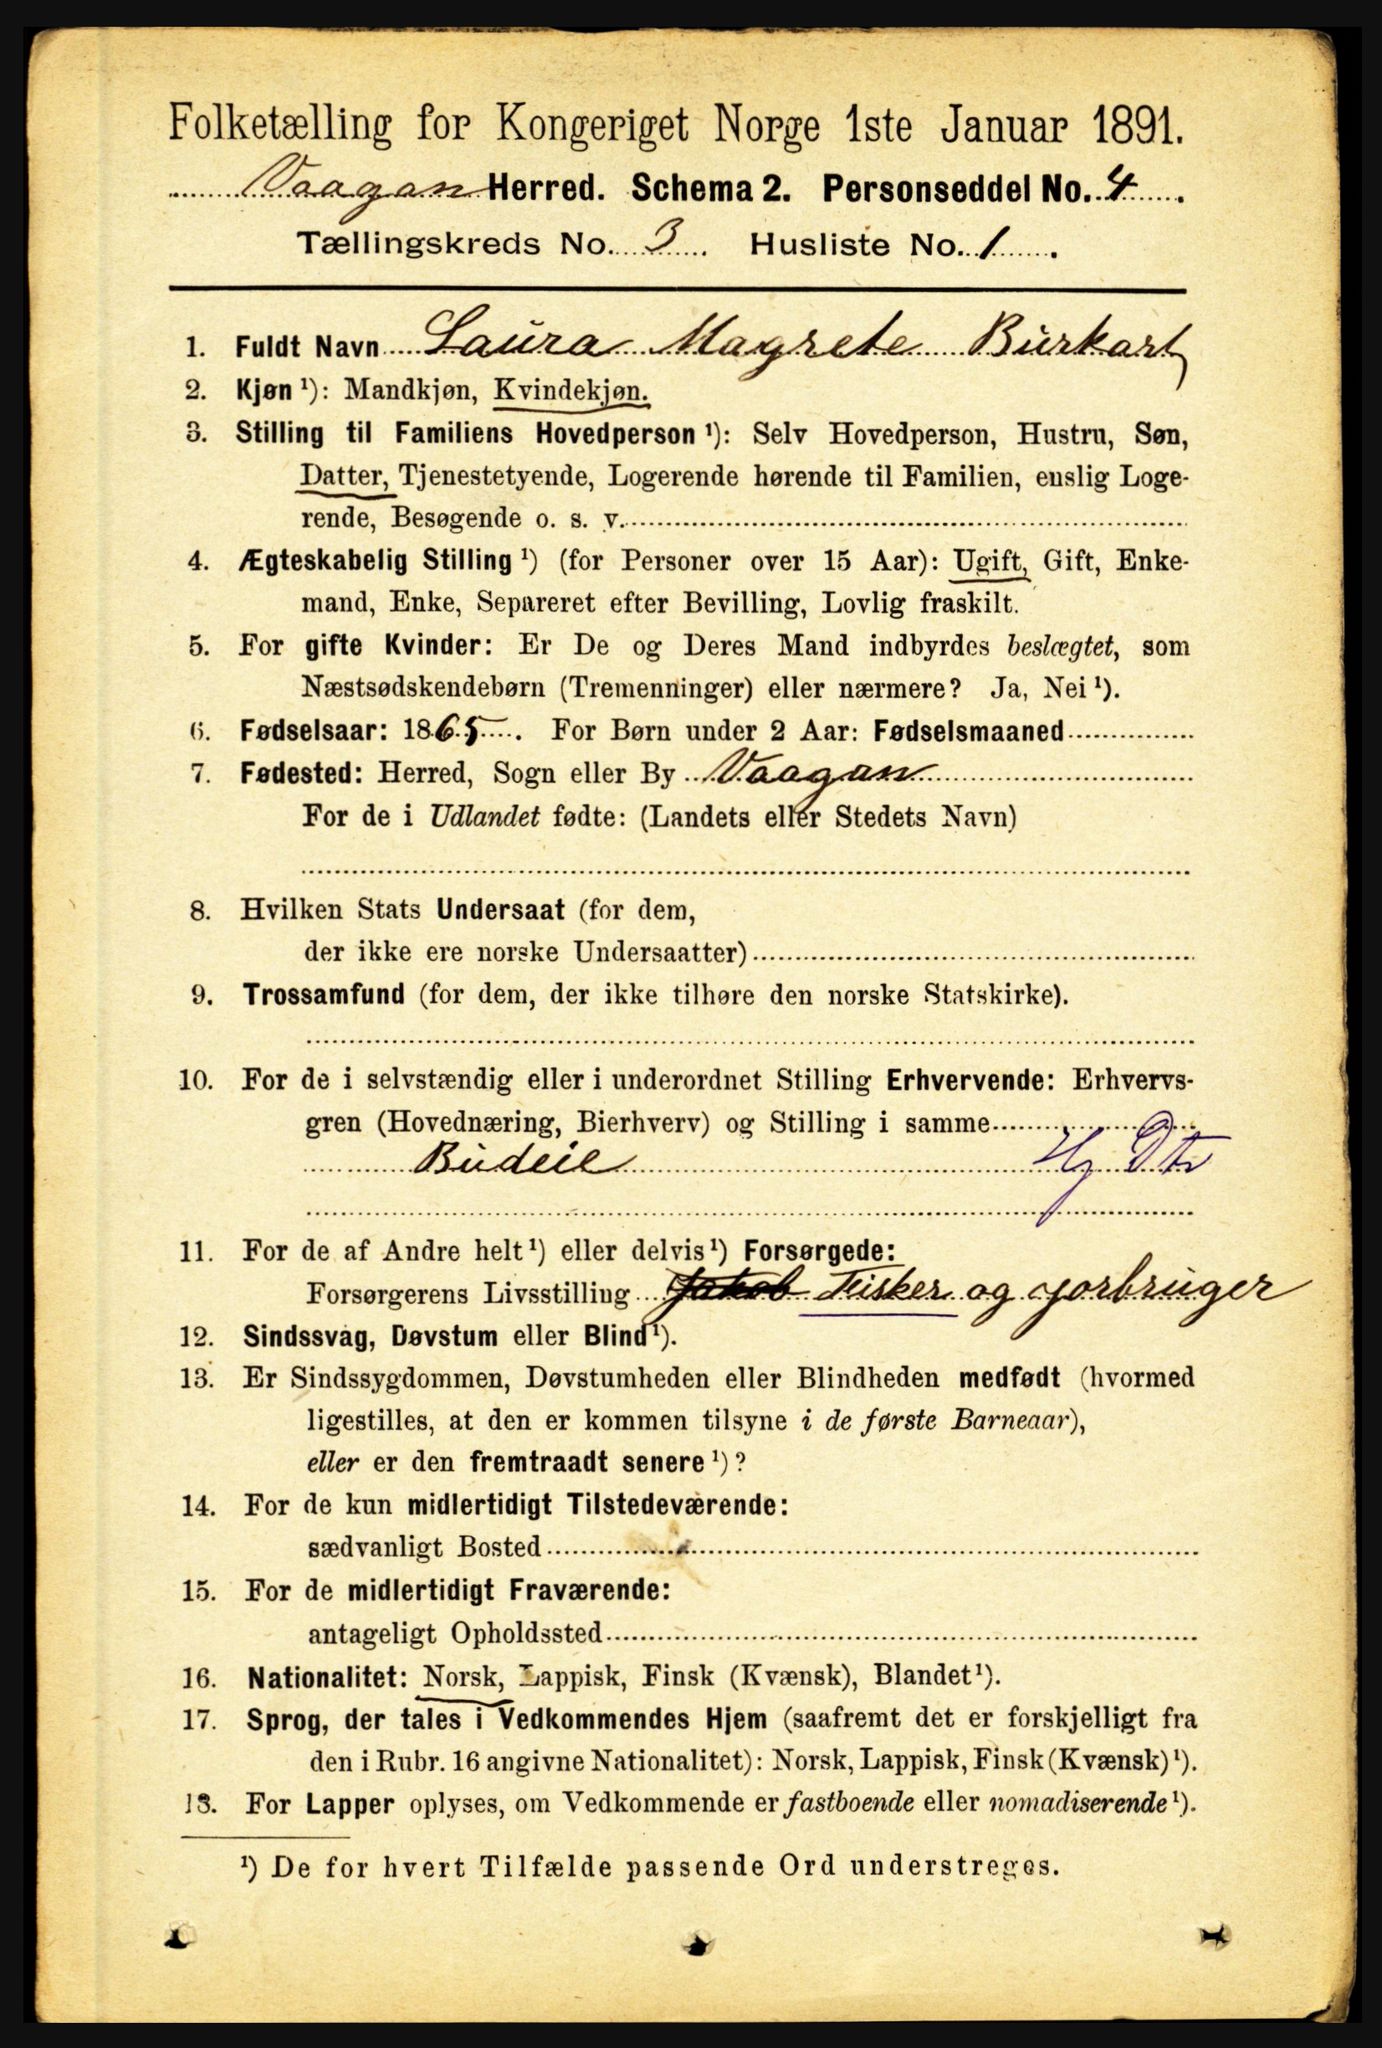 Folketælling for Kongeriget Norge 1ste Januar 1891.
Vaagan Herred. Schema 2. Personseddel No. 4.
Tællingskreds No. 3. Husliste No. 1.
1. Fuldt Navn Laura Magrete Burkart
2. Kjøn ¹): Mandkjøn, Kvindekjøn.
3. Stilling til Familiens Hovedperson ¹): Selv Hovedperson, Hustru, Søn,
Datter, Tjenestetyende, Logerende hørende til Familien, enslig Loge-
rende, Besøgende o. s. v.
4. Ægteskabelig Stilling ¹) (for Personer over 15 Aar): Ugift, Gift, Enke-
mand, Enke, Separeret efter Bevilling, Lovlig fraskilt.
5. For gifte Kvinder: Er De og Deres Mand indbyrdes beslægtet, som
Næstsødskendebørn (Tremenninger) eller nærmere? Ja, Nei ¹).
6. Fødselsaar: 1865. For Børn under 2 Aar: Fødselsmaaned
7. Fødested: Herred, Sogn eller By Vaagan
For de i Udlandet fødte: (Landets eller Stedets Navn)
8. Hvilken Stats Undersaat (for dem,
der ikke ere norske Undersaatter)
9. Trossamfund (for dem, der ikke tilhøre den norske Statskirke).
10. For de i selvstændig eller i underordnet Stilling Erhvervende: Erhvervs-
gren (Hovednæring, Bierhverv) og Stilling i samme
Budeie Hj Dtr
11. For de af Andre helt ¹) eller delvis ¹) Forsørgede:
Forsørgerens Livsstilling Jakob Fisker og jorbruger
12. Sindssvag, Døvstum eller Blind ¹).
13. Er Sindssygdommen, Døvstumheden eller Blindheden medfødt (hvormed
ligestilles, at den er kommen tilsyne i de første Barneaar),
eller er den fremtraadt senere ¹)?
14. For de kun midlertidigt Tilstedeværende:
sædvanligt Bosted
15. For de midlertidigt Fraværende:
antageligt Opholdssted
16. Nationalitet: Norsk, Lappisk, Finsk (Kvænsk), Blandet ¹).
17. Sprog, der tales i Vedkommendes Hjem (saafremt det er forskjelligt fra
den i Rubr. 16 angivne Nationalitet): Norsk, Lappisk, Finsk (Kvænsk) ¹).
18. For Lapper oplyses, om Vedkommende er fastboende eller nomadiserende ¹).
¹) De for hvert Tilfælde passende Ord understreges.